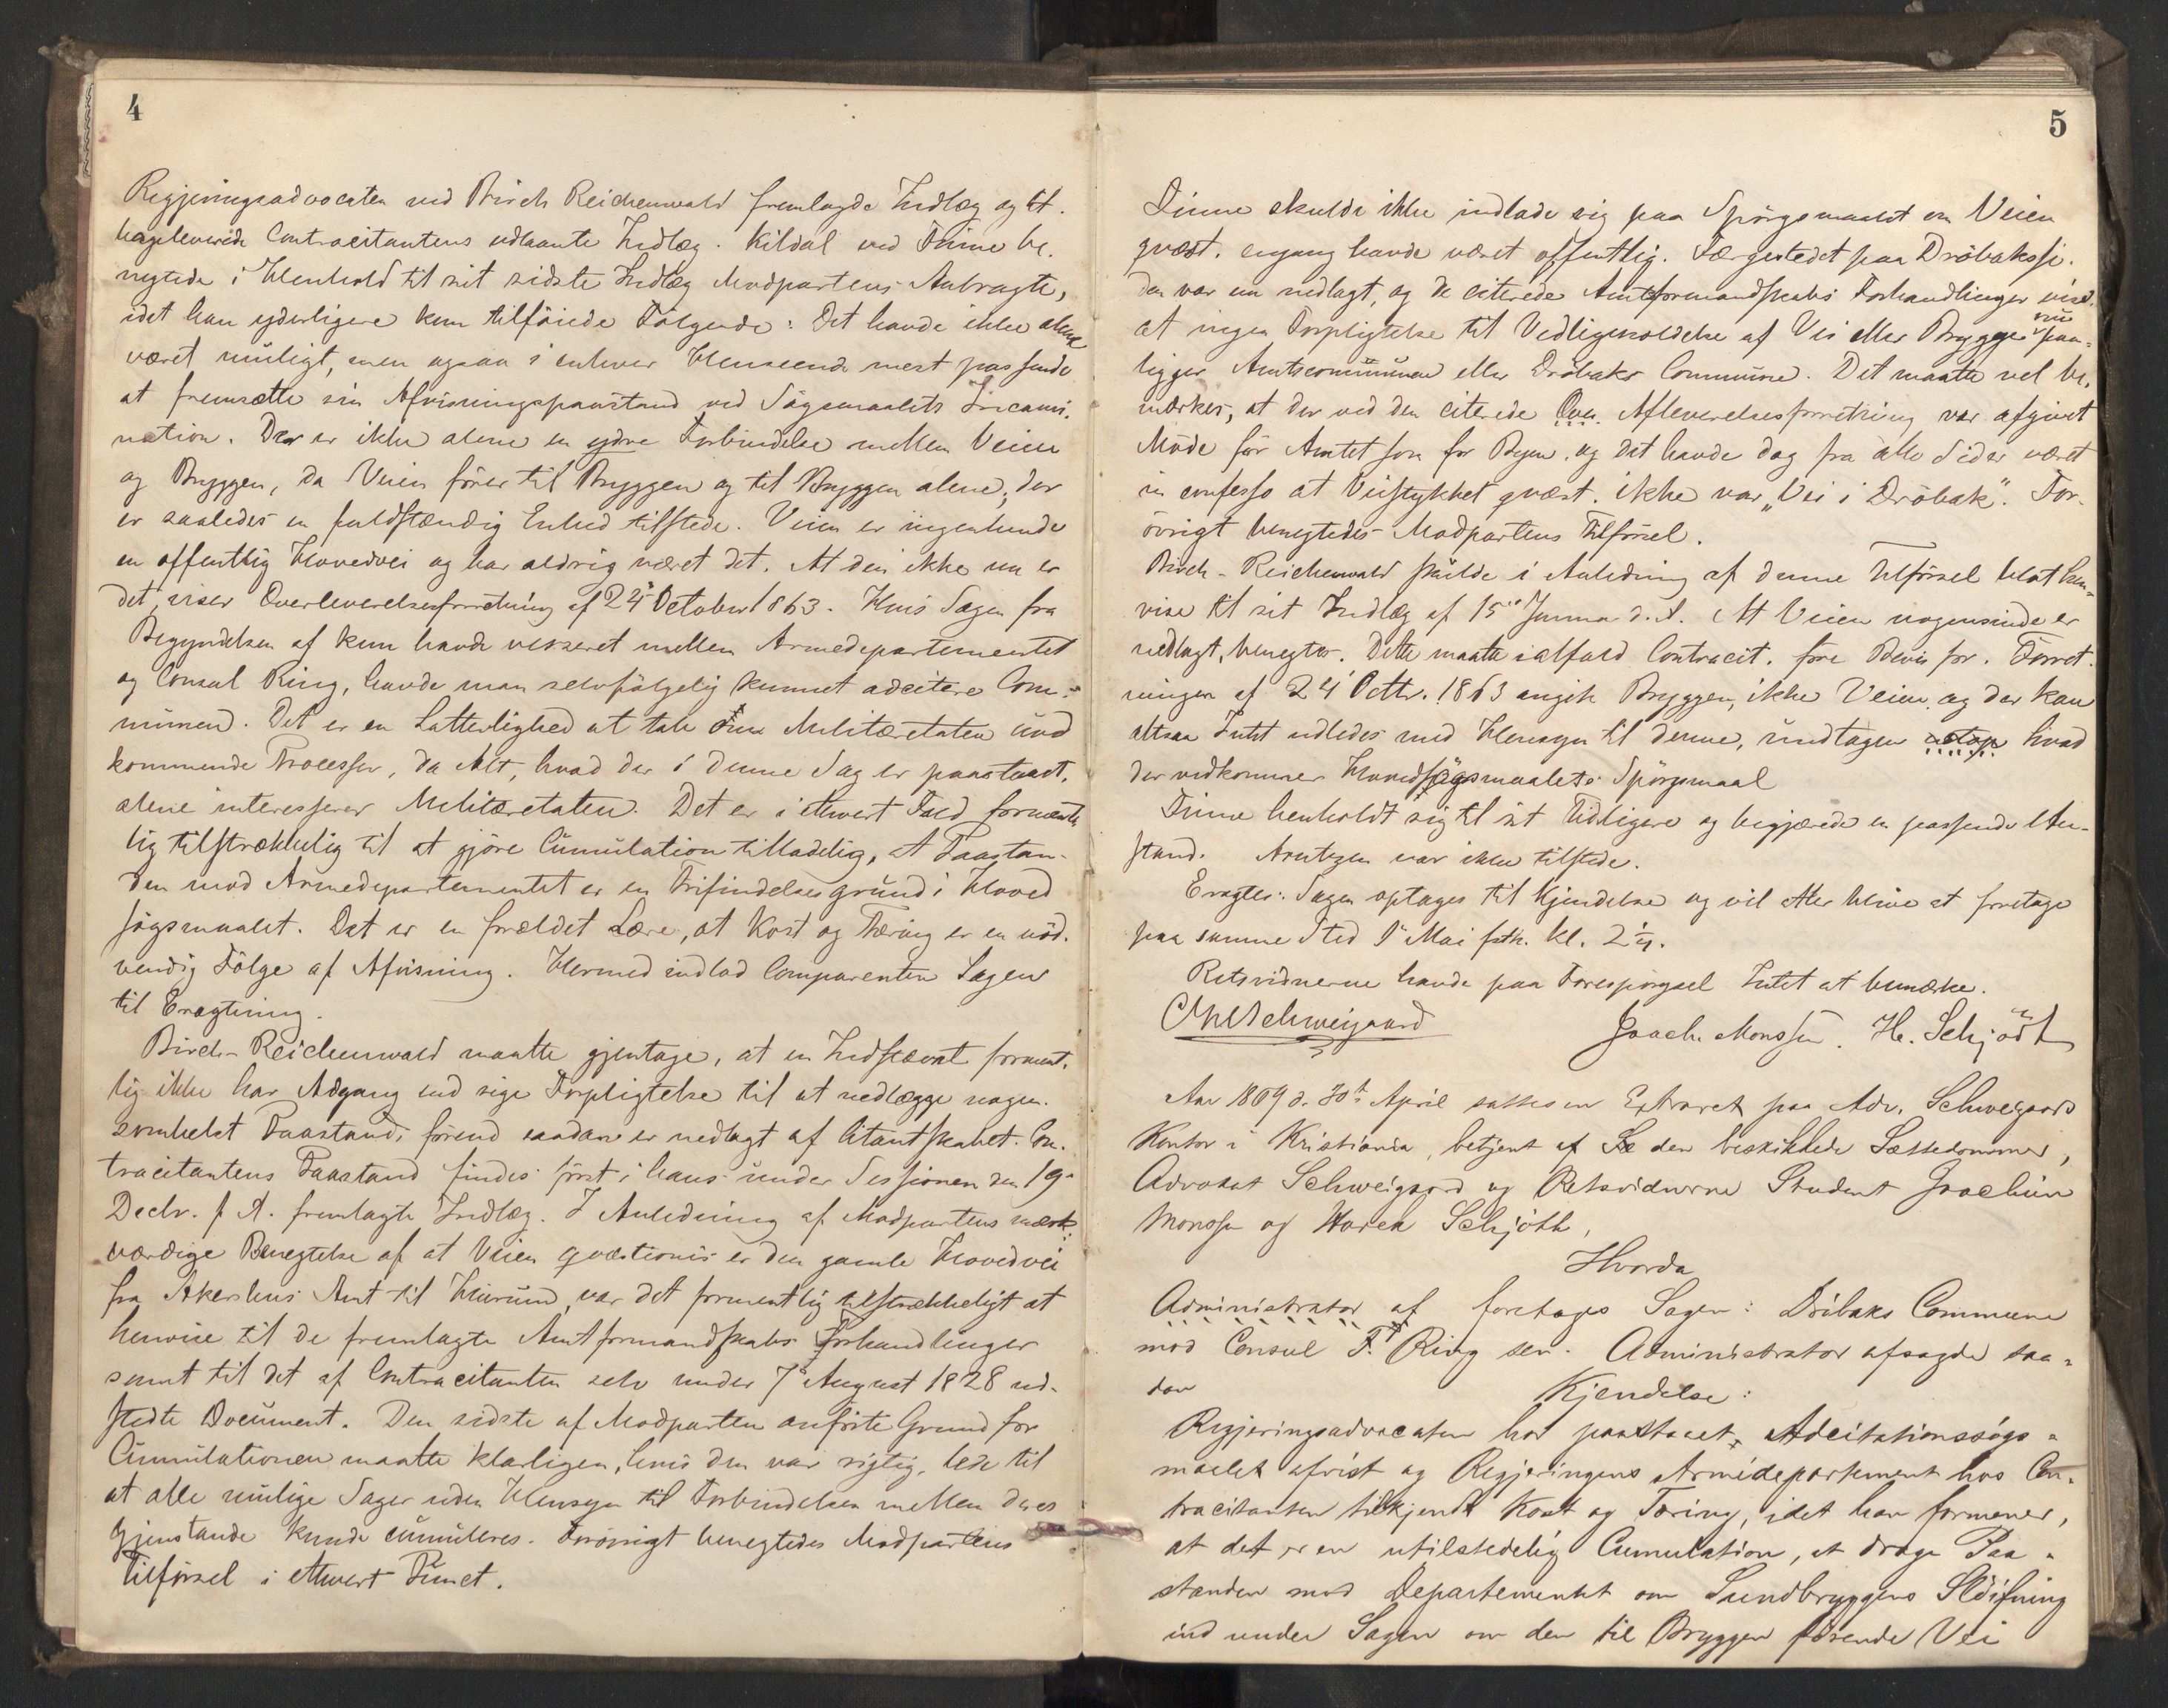 4
Regjeringsadvocaten ved Birch Reichenwald fremlagde Indlæg og til-
bageleverede Contracitantens udlaante Indlæg. Kildal ved Finne be-
negtede i Henhold til sit sidste Indlæg Modpartens Anbragte,
idet han yderligere kun tilföiede Fölgende: Det havde ikke alene
været muligt, men ogsaa i enhver Henseende mest passende
at fremsætte sin Afvisningspaastand ved Sögsmaalets Incami-
nation. Der er ikke alene en ydre Forbindelse mellem Veien
og Bryggen, da Veien förer til Bryggen og til Bryggen alene; der
er saaledes en fuldstændig Enhed tilstede. Veien er ingenlunde
en offentlig Hovedvei og har aldrig været det. At den ikke nu er
det, viser Overleverelsesforretning af 24 October 1863. Hvis Sagen fra
Begyndelsen af kun havde verseret mellem Armedepartementet
og Consul Ring, havde man selvfölgelig kunnet adcitere Com-
munen. Det er en Latterlighed at tale om Militæretaten uved-
kommende Processer, da Alt, hvad der i denne Sag er paastaaet,
alene interesserer Militæretaten. Det er i ethvert Fald forment-
lig tilstrækkelig til at gjöre Cumulation tilladelig, at Paastan-
den mod Armedepartementet er en Frifindelsesgrund i Hoved
sögsmaalet. Det er en forældet Lære, at Kost og Tæring er en nöd-
vendig Fölge af Afvisning. Hermed indlod Comparenten Sagen
til Eragtning.
Birch-Reichenwald maatte gjentage, at en Indstævnt forment-
lig ikke har Adgang end sige Forpligtelse til at nedlægge nogen-
somhelst Paastand, förend saadan er nedlagt af Citantskabet. Con-
tracitantens Paastand findes först i hans under Sessionen den 19de
Decbr. f. A. fremlagte Indlæg. I Anledning af Modpartens mærk-
værdige Benegtelse af at Veien qvæstionis er den gamle Hovedvei
fra Akershus Amt til Hurum, var det formentlig tilstrækkeligt at
henvise til de fremlagte Amtformandskabs Forhandlinger
samt til det af Contracitanten selv under 7de August 1828 ud-
stedte Document. Den sidste af Modparten anförte Grund for
Cumulationen maatte klarligen, hvis den var rigtig, lede til
at alle mulige Sager uden Hensyn til Forbindelsen mellem deres
Gjenstande kunde cumuleres. Forövrigt benegtedes Modpartens
Tilförsel i ethvert Punct.
5
Finne skulde ikke indlade sig paa Spörgsmaalet om Veien
qvæst. engang havde været offentlig. Færgestedet paa Dröbakssi-
den var nu nedlagt, og de citerede Amtsformandskabs Forhandlinger viser,
at ingen Forpligtelse til Vedligeholdelse af Vei eller Brygge nu paa-
ligger Amtscommunen eller Dröbaks Commune. Det maatte vel be-
mærkes, at der ved den citerede Over. Afleverelsesforretning var afgivet
Möde för Amtet som for Byen, og det havde dog fra alle Sider været
in confesso at Veistykket qvæst. ikke var „Vei i Dröbak“. For-
övrigt benegtedes Modpartens Tilförsel.
Birch-Reichenwald skulde i Anledning af denne Tilförsel blot hen-
vise til sit Indlæg af 15de Januar d. A. At Veien nogensinde er
nedlagt, benegtes. Dette maatte ialfald Contracit. före Bevis for. Forret-
ningen af 24 Octbr. 1863 angik Bryggen, ikke Veien, og der kan
altsaa Intet udledes med Hensyn til denne, undtagen hvad
der vedkommer Hovedsögsmaalets Spörgsmaal
Finne henholdt sig til sit Tidligere og begjærede en passende An-
stand. Arntzen var ikke tilstede.
Eragtes: Sagen optages til Kjendelse og vil atter blive at foretage
paa samme Sted 1ste Mai förstk. Kl. 2 1/4.
Retsvidnerne havde paa Forespörgsel Intet at bemærke.
Chr Schweigaard
Joach. Monssen. H. Schjödt
Aar 1869 d. 30te April sattes en Extraret paa Adv. Schweigaards
Kontor i Kristiania, betjent af Sæ den beskikkede Sættedommer,
Advokat Schweigaard og Retsvidnerne Student Joachim
Monssen og Harek Schjött,
Hvorda
Administrator af foretages Sagen: Dröbaks Commune
mod Consul F. Ring sen. Administrator afsagde saa-
dan
Kjendelse:
Regjeringsadvocaten har paastaaet, Adcitationssögs-
maalet afvist og Regjeringens Armédepartement hos Con-
tracitanten tilkjendt Kost og Tæring, idet han formener,
at det er en utilstedelig Cumulation, at drage Paa-
standen mod Departementet om Sundbryggens Slöifning
ind under Sagen om den til Bryggen förende Vei